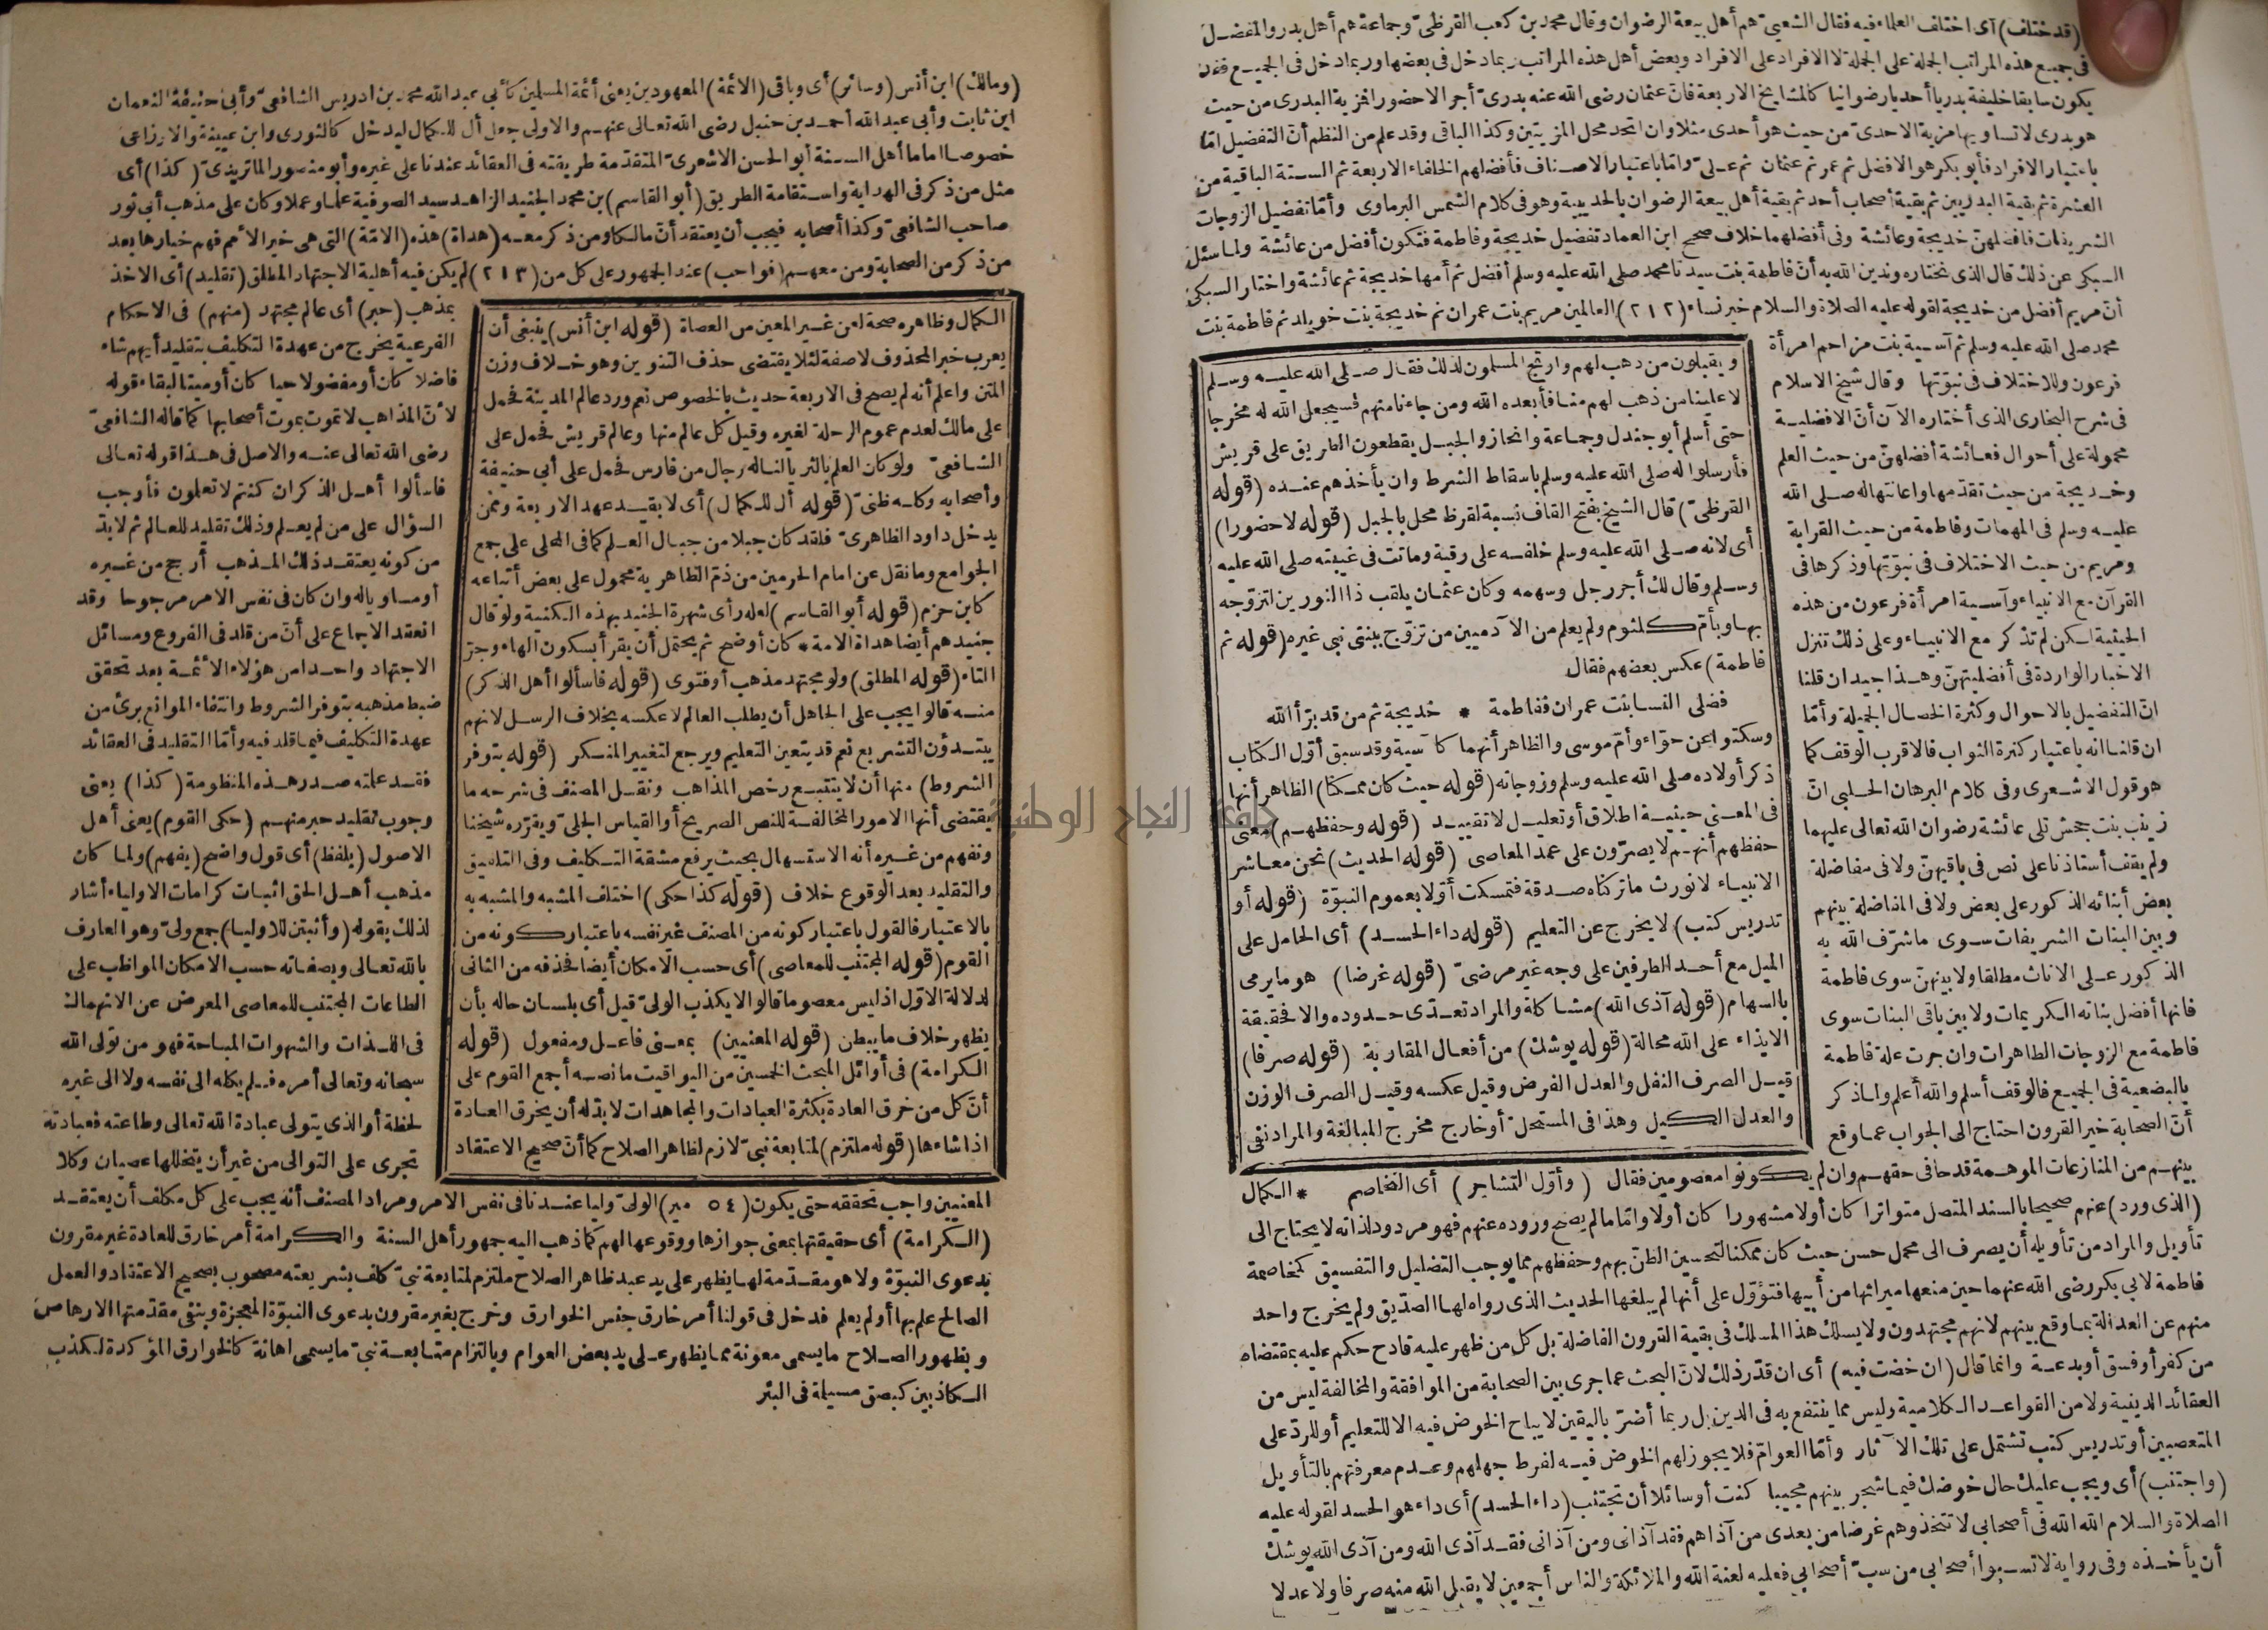 (قد ختلف) أى اختلف العلماء فيه فقال الشعبىّ هم أهل بيعة الرضوان وقال محمد بن كعب القرظىّ وجماعة هم أهل بدر والتفضيل
فى جميع هذه المراتب الجملة على الجملة لا الافراد على الافراد وبعض أهل هذه المراتب ربما دخل فى بعضها وربما دخل فى الجميع فقد
يكون سابقا خليفة بدريا أحديا رضوانيا كالمشايخ الاربعة فان عثمان رضى الله عنه بدرىّ أجرا لا حضورا فمزية البدرى من حيث
هو بدرى لا تساويها مزية الاحدىّ من حيث هو أحدى مثلا وان اتحد محل المزيتين وكذا الباقى وقد علم من النظم أنّ التفضيل امّا
باعتبار الافراد فأبو بكر هو الافضل ثم عمر ثم عثمان ثم علىّ وامّا باعتبار الاصناف فأفضلهم الخلفاء الاربعة ثم الستة الباقية من
العشرة ثم بقية البدريين ثم بقية أصحاب أحد ثم بقية أهل بيعة الرضوان بالحديبية وهو فى كلام الشمس البرماوى وأمّا تفضيل الزوجات
الشريفات فافضلهنّ خديجة وعائشة وفى أفضلهما خلاف صحح ابن العماد تفضيل خديجة وفاطمة فتكون أفضل من عائشة ولما سئل
السبكى عن ذلك قال الذى نختاره وندين الله به أنّ فاطمة بنت سيدنا محمد صلى الله عليه وسلم أفضل ثم أمها خديجة ثم عائشة واختار السبكى
أنّ مريم أفضل من خديجة لقوله عليه الصلاة والسلام خير نساء (٢١٢) العالمين مريم بنت عمران ثم خديجة بنت خويلد ثم فاطمة بنت
محمد صلى الله عليه وسلم ثم آسية بنت مزاحم امرأة
فرعون وللاختلاف فى نبوّتها وقال شيخ الاسلام
فى شرح البخارى الذى أختاره الآن أنّ الافضلية
محمولة على أحوال فعائشة أفضلهنّ من حيث العلم
وخديجة من حيث تقدّمها واعانتها له صلى الله
عليه وسلم فى المهمات وفاطمة من حيث القرابة
ومريم من حيث الاختلاف فى نبوّتها وذكرها فى
القرآن مع الانبياء وآسية امرأة فرعون من هذه
الحيثية لكن لم تذكر مع الانبياء وعلى ذلك تنزل
الاخبار الواردة فى أفضليتهنّ وهذا جيد ان قلنا
انّ التفضيل بالاحوال وكثرة الخصال الجميلة وأمّا
ان قلنا انه باعتبار كثرة الثواب فالاقرب الوقف كما
هو قول الاشعرى وفى كلام البرهان الحلبى انّ
زينب بنت جحش تلى عائشة رضوان الله تعالى عليهما
ولم يقف أستاذنا على نص فى باقيهنّ ولا فى مفاضلة
بعض أبنائه الذكور على بعض ولا فى المفاضلة بينهم
وبين البنات الشريفات سوى ما شرّف الله به
الذكور على الاناث مطلقا ولا بينهنّ سوى فاطمة
فانها أفضل بناته الكريمات ولا بين باقى البنات سوى
فاطمة مع الزوجات الطاهرات وان جرت علة فاطمة
بالبضعية فى الجميع فالوقف أسلم والله أعلم ولما ذكر
أنّ الصحابة خير القرون احتاج الى الجواب عما وقع
بينهم من المنازعات الموهمة قدحا فى حقهم وان لم يكونوا معصومين فقال (وأوّل التشاجر) أى التخاصم
(الذى ورد) عنهم صحيحا بالسند المتصل متواترا كان أولا مشهورا كان أولا وامّا ما لم يصح وروده عنهم فهو مردود لذاته لا يحتاج الى
تأويل والمراد من تأويله أن يصرف الى محمل حسن حيث كان ممكنا لتحسين الظنّ بهم وحفظهم مما يوجب التضليل والتفسيق كمخاصمة
فاطمة لابى بكر رضى الله عنهما حين منعها ميراثها من أبيها فتؤوّل على أنها لم يبلغها الحديث الذى رواه لها الصدّيق ولم يخرج واحد
منهم عن العدالة بما وقع بينهم لانهم مجتهدون ولا يسلك هذا المسلك فى بقية القرون الفاضلة بل كل من ظهر عليه قادح حكم عليه بمقتضاه
من كفر أو فسق أو بدعة وانما قال (ان خضت فيه) أى ان قدّر ذلك لانّ البحث عما جرى بين الصحابة من الموافقة والمخالفة ليس من
العقائد الدينية ولا من القواعد الكلامية وليس مما ينتفع به فى الدين بل ربما أضرّ باليقين لا يباح الخوض فيه الا للتعليم أو للردّ على
المتعصبين أو تدريس كتب تشتمل على تلك الآثار وأمّا العوام فلا يجوز لهم الخوض فيه لفرط جهلهم وعدم معرفتهم بالتأويل
(واجتنب) أى ويجب عليك حال خوضك فيما شجر بينهم مجيبا كنت أو سائلا أن تجتنب (داء الحسد) أى داء هو الحسد لقوله عليه
الصلاة والسلام الله الله فى أصحابى لا تتخذوهم غرضا من بعدى من آذاهم فقد آذانى ومن آذانى فقد آذى الله ومن آذى الله يوشك
أن يأخذه وفى رواية لا تسبوا أصحابى من سبّ أصحابى فعليه لعنة الله والملائكة والناس أجمعين لا يقبل الله منه صرفا ولا عدلا
ويقبلون من ذهب لهم وارتج المسلمون لذلك فقال صلى الله عليه وسلم
لا علينا من ذهب لهم منا فأبعده الله ومن جاءنا منهم فسيجعل الله له مخرجا
حتى أسلم أبو جندل وجماعة وانحازوا لجبل يقطعون الطريق على قريش
فأرسلوا له صلى الله عليه وسلم باسقاط الشرط وان يأخذهم عنده (قوله
القرظىّ) قال الشيخ بفتح القاف نسبة لقرظ محل بالجبل (قوله لا حضورا)
أى لانه صلى الله عليه وسلم خلفه على رقية وماتت فى غيبته صلى الله عليه
وسلم وقال لك أجر رجل وسهمه وكان عثمان يلقب ذا النورين لتزوّجه
بها وبأمّ كلثوم ولم يعلم من الآدميين من تزوّج ببنتى نبى غيره (قوله ثم
فاطمة) عكس بعضهم فقال
فضلى النسا بنت عمران ففاطمة * خديجة ثم من قد برّأ الله
وسكتوا عن حوّاء وأمّ موسى والظاهر أنهما كآسية وقد سبق أوّل الكتاب
ذكر أولاده صلى الله عليه وسلم وزوجاته (قوله حيث كان ممكنا) الظاهر أنها
فى المعنى حيثية اطلاق أو تعليل لا تقييد (قوله وحفظهم) معنى
حفظهم أنهم لا يصرّون على عمد المعاصى (قوله الحديث) نحن معاشر
الانبياء لا نورث ما تركناه صدقة فتمسكت أوّلا بعموم النبوّة (قوله أو
تدريس كتب) لا يخرج عن التعليم (قوله داء الحسد) أى الحامل على
الميل مع أحد الطرفين على وجه غير مرضىّ (قوله غرضا) هو ما يرمى
بالسهام (قوله آذى الله) مشاكلة والمراد تعدّى حدوده والا فحقيقة
الايذاء على الله محالة (قوله يوشك) من أفعال المقاربة (قوله صرفا)
قيل الصرف النفل والعدل الفرض وقيل عكسه وقيل الصرف الوزن
والعدل الكيل وهذا فى المستحلّ أو خارج مخرج المبالغة والمراد نفى
* الكمال
(ومالك) ابن أنس (وسائر) أى وباقى (الائمة) المعهودين يعنى أئمة المسلمين كأبى عبد الله محمد بن ادريس الشافعىّ وأبى حنيفة النعمان
ابن ثابت وأبى عبد الله أحمد بن حنبل رضى الله تعالى عنهم والاولى جعل أل للكمال ليدخل كالثورى وابن عيينة والاوزاعى
خصوصا اماما أهل السنة أبو الحسن الاشعرىّ المتقدّمة طريقته فى العقائد عندنا على غيره وأبو منصور الماتريدىّ (كذا) أى
مثل من ذكر فى الهداية واستقامة الطريق (أبو القاسم) بن محمد الجنيد الزاهد سيد الصوفية علما وعملا وكان على مذهب أبى ثور
صاحب الشافعىّ وكذا أصحابه فيجب أن يعتقد أنّ مالكا ومن ذكر معه (هداة) هذه (الامّة) التى هى خير الامم فهم خيارها بعد
من ذكر من الصحابة ومن معهم (فواجب) عند الجمهور على كل من (٢١٣) لم يكن فيه أهلية الاجتهاد المطلق (تقليد) أى الاخذ
بمذهب (حبر) أى عالم مجتهد (منهم) فى الاحكام
الفرعية يخرج من عهدة التكليف بتقليد أيهم شاء
فاضلا كان أو مفضولا حيا كان أو ميتا لبقاء قوله
لأنّ المذاهب لا تموت بموت أصحابها كما قاله الشافعىّ
رضى الله تعالى عنه والاصل فى هذا قوله تعالى
فاسألوا أهل الذكر ان كنتم لا تعلمون فأوجب
السؤال على من لم يعلم وذلك تقليد للعالم ثم لا بدّ
من كونه يعتقد ذلك المذهب أرجح من غيره
أو مساويا له وان كان فى نفس الامر مرجوحا وقد
انعقد الاجماع على أنّ من قلد فى الفروع ومسائل
الاجتهاد واحدا من هؤلاء الائمة بعد تحقق
ضبط مذهبه بتوفر الشروط وانتفاء الموانع برئ من
عهدة التكليف فيما قلد فيه وأمّا التقليد فى العقائد
فقد علمته صدر هذه المنظومة (كذا) يعنى
وجوب تقليد حبر منهم (حكى القوم) يعنى أهل
الاصول (بلفظ) أى قول واضح (يفهم) ولما كان
مذهب أهل الحق اثبات كرامات الاولياء أشار
لذلك بقوله (وأثبتن للاوليا) جمع ولىّ وهو العارف
بالله تعالى وبصفاته حسب الامكان المواظب على
الطاعات المجتنب للمعاصى المعرض عن الانهماك
فى اللذات والشهوات المباحة فهو من تولى الله
سبحانه وتعالى أمره فلم يكله الى نفسه ولا الى غيره
لحظة أو الذى يتولى عبادة الله تعالى وطاعته فعبادته
تجرى على التوالى من غير أن يتخللها عصيان وكلا
المعنيين واجب تحققه حتى يكون (٥٤ مير) الولىّ وليا عندنا فى نفس الامر ومراد المصنف أنه يجب على كل مكلف أن يعتقد
(الكرامة) أى حقيقتها بمعنى جوازها ووقوعها لهم كما ذهب اليه جمهور أهل السنة والكرامة أمر خارق للعادة غير مقرون
بدعوى النبوّة ولا هو مقدّمة لها يظهر على يد عبد ظاهر الصلاح ملتزم لمتابعة نبىّ كلف بشريعته مصحوب بصحيح الاعتقاد والعمل
الصالح علم بها أو لم يعلم فدخل فى قولنا أمر خارق جنس الخوارق وخرج بغير مقرون بدعوى النبوّة المعجزة وبنفى مقدّمتها الارهاص
وبظهور الصلاح ما يسمى معونة مما يظهر على يد بعض العوام وبالتزام متابعة نبىّ ما يسمى اهانة كالخوارق المؤكدة لكذب
الكاذبين كبصق مسيلة فى البئر
الكمال وظاهره صحة لعن غير المعين من العصاة (قوله ابن أنس) ينبغى أن
يعرب خبر المحذوف لا صفة لئلا يقتضى حذف التنوين وهو خلاف وزن
المتن واعلم أنه لم يصح فى الاربعة حديث بالخصوص نعم ورد عالم المدينة فحمل
على مالك لعدم عموم الرحلة لغيره وقيل كل عالم منها وعالم قريش فحمل على
الشافعىّ ولو كان العلم بالثريا لناله رجال من فارس فحمل على أبى حنيفة
وأصحابه وكله ظنىّ (قوله أل للكمال) أى لا بقيد عهد الاربعة وممن
يدخل داود الظاهرىّ فلقد كان جبلا من جبال العلم كما فى المحلى على جمع
الجوامع وما نقل عن امام الحرمين من ذمّ الظاهرية محمول على بعض أتباعه
كابن حزم (قوله أبو القاسم) لعله رأى شهرة الجنيد بهذه الكنية ولو قال
جنيدهم أيضا هداة الامة * كان أوضح ثم يحتمل أن يقرأ بسكون الهاء وجرّ
التاء (قوله المطلق) ولو مجتهد مذهب أو فتوى (قوله فاسألوا أهل الذكر)
منه قالوا يجب على الجاهل أن يطلب العالم لا عكسه بخلاف الرسل لانهم
يبتدؤن التشريع نعم قد يتعين التعليم ويرجع لتغيير المنكر (قوله بتوفر
الشروط) منها أن لا يتتبع رخص المذاهب ونقل المصنف فى شرحه ما
يقتضى أنها الامور المخالفة للنص الصريح أو القياس الجلىّ ويقرّره شيخنا
ونفهم من غيره أنه الاستسهال بحيث يرفع مشقة التكليف وفى التلفيق
والتقليد بعد الوقوع خلاف (قوله كذا حكى) اختلف المشبه والمشبه به
بالاعتبار فالقول باعتبار كونه من المصنف غير نفسه باعتبار كونه من
القوم (قوله المجتنب للمعاصى) أى حسب الامكان أيضا فحذفه من الثانى
لدلالة الاوّل اذ ليس معصوما قالوا لا يكذب الولىّ قيل أى بلسان حاله بأن
يظهر خلاف ما يبطن (قوله المعنيين) بمعنى فاعل ومفعول (قوله
الكرامة) فى أوائل المبحث الخمسين من اليواقيت ما نصه أجمع القوم على
أنّ كل من خرق العادة بكثرة العبادات والمجاهدات لا بدّ له أن يخرق العادة
اذا شاءها (قوله ملتزم) لمتابعة نبىّ لازم لظاهر الصلاح كما أنّ صحيح الاعتقاد
النجاح الوطنية